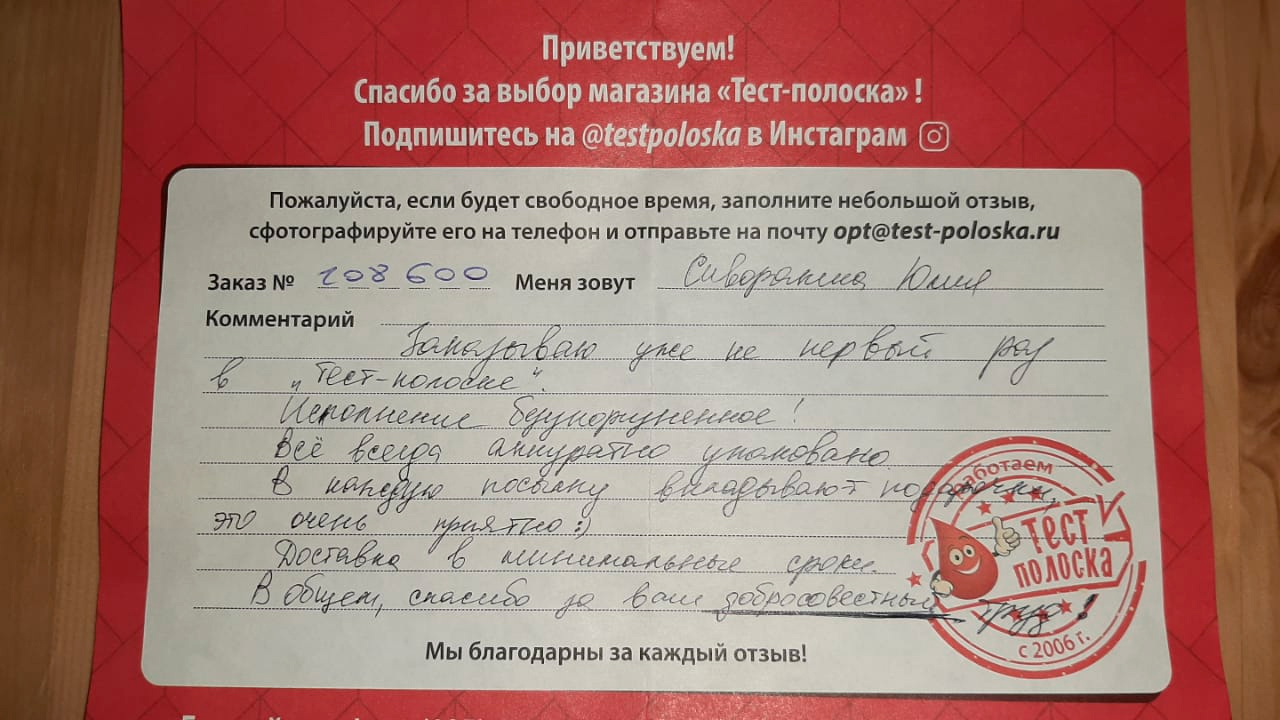 Приветствуем!
Спасибо за выбор магазина «Тест-полоска» !
Подпишитесь на @testpoloska в Инстаграм
Пожалуйста, если будет свободное время, заполните небольшой отзыв,
сфотографируйте его на телефон и отправьте на почту opt@test-poloska.ru
Заказ № 108600 Меня зовут Юлия
Комментарий
Заказываю уже не первый раз
в „Тест-полоске“.
Исполнение безукоризненное!
Всё всегда аккуратно упаковано.
В каждую посылку вкладывают подарочки,
это очень приятно :)
Доставка в минимальные сроки.
В общем, спасибо за ваш добросовестный труд!
работаем
ТЕСТ
ПОЛОСКА
с 2006 г.
Мы благодарны за каждый отзыв!